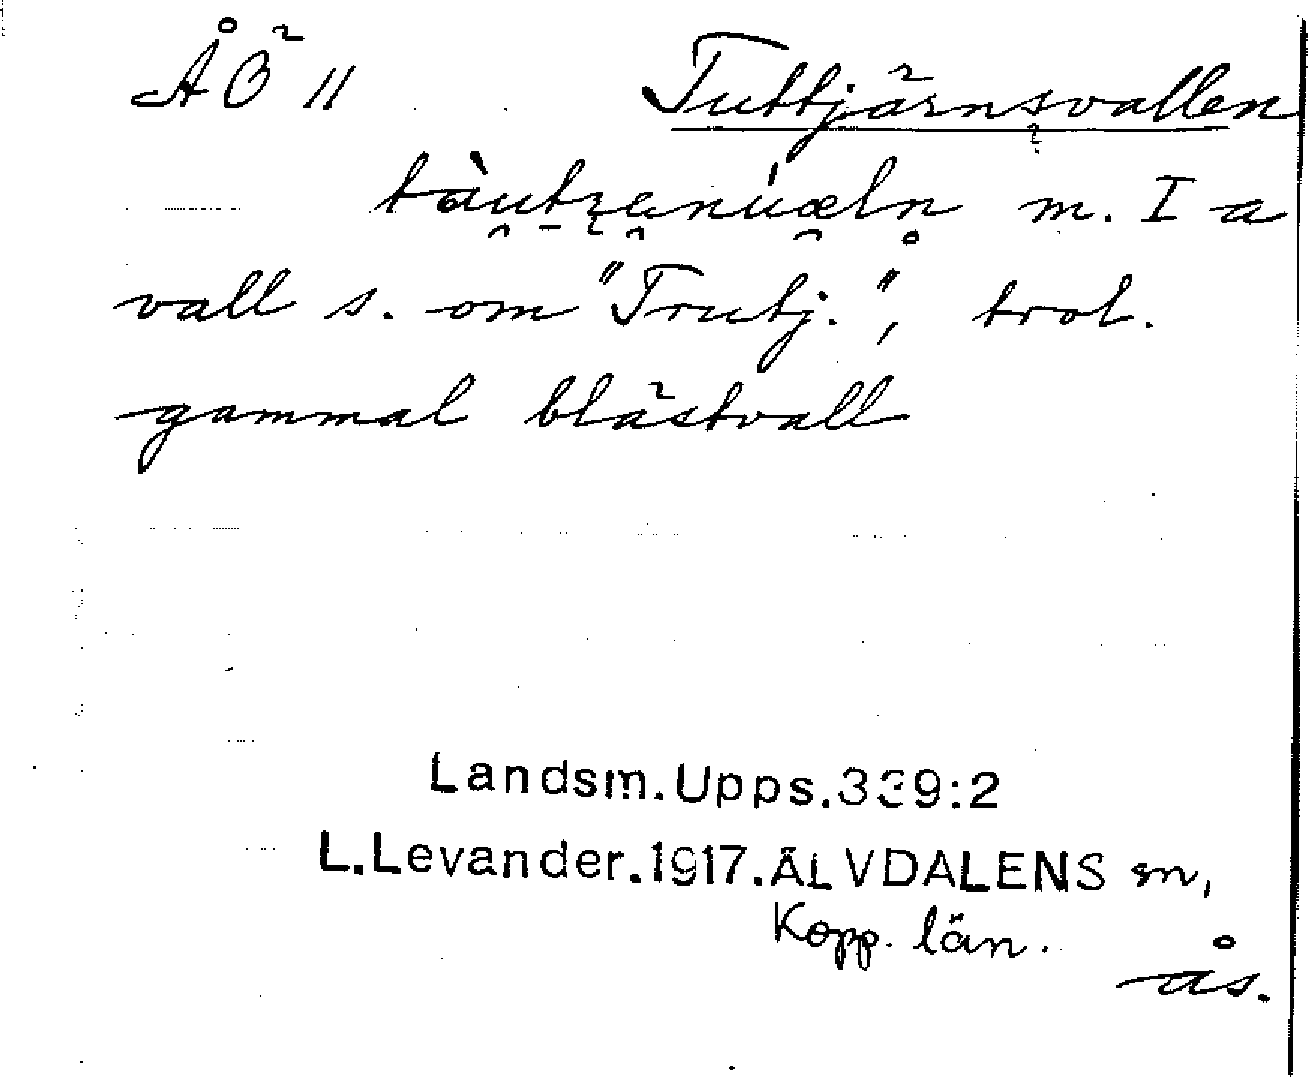 ÅÖ 11 Tuttjärnsvallen
m. I a
vall s. om "Trutj.", trol.
gammal blästvall
Landsm.Upps.339:2
L.Levander.1917.ÄLVDALENS sn,
Kopp. län.
ås.